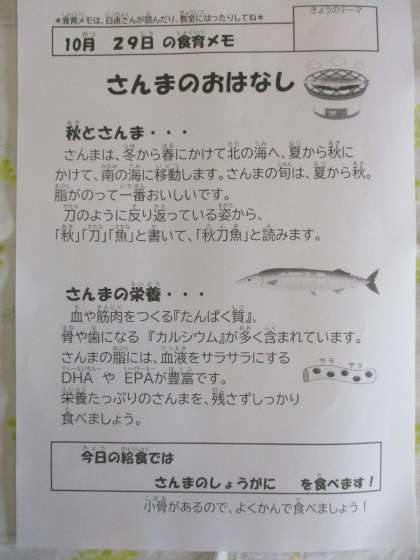 *食育メモは、日直さんが読んだり、教室にはったりしてね*
きょうのテーマ
10月 29日の食育メモ
さんまのおはなし
秋とさんま・・・
さんまは、冬から春にかけて北の海へ、夏から秋に
かけて、南の海に移動します。さんまの旬は、夏から秋。
脂がのって一番おいしいです。
刀のように反り返っている姿から、
「秋」「刀」「魚」と書いて、「秋刀魚」と読みます。
さんまの栄養・・・
血や筋肉をつくる『たんぱく質』、
骨や歯になる『カルシウム』が多く含まれています。
さんまの脂には、血液をサラサラにする
DHA や EPAが豊富です。
サラ サラ
栄養たっぷりのさんまを、残さずしっかり
食べましょう。
今日の給食では
さんまのしょうがに を食べます！
小骨があるので、よくかんで食べましょう！